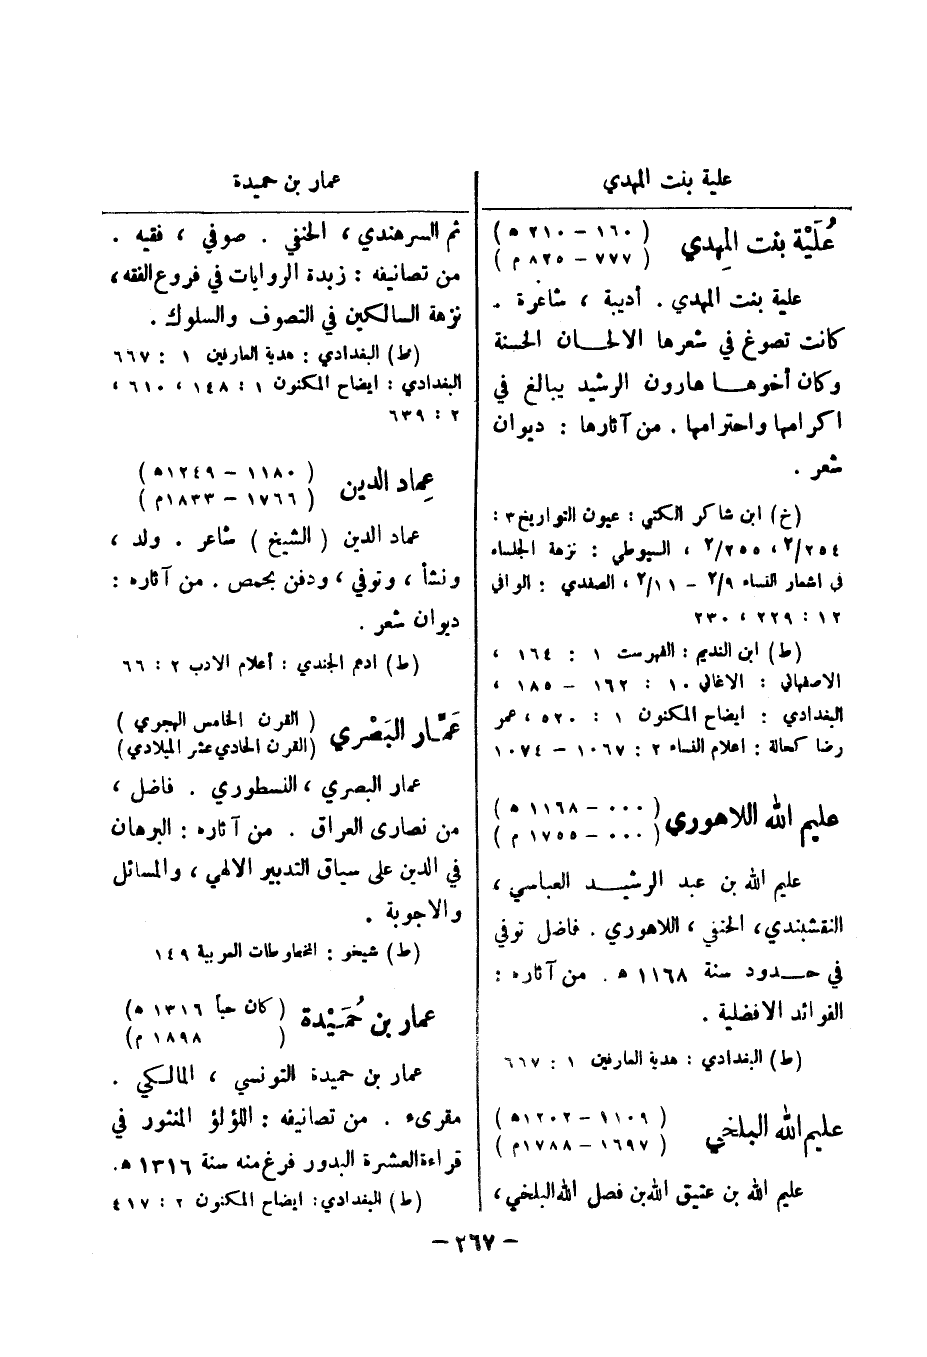 علية بنت المهدي
عُلَيَّة بنت المِهدي ( ١٦٠ – ٢١٠ ه )
( ٧٧٧ – ٨٢٥ م )
علية بنت المهدي . أديبة ، شاعرة .
كانت تصوغ في شعرها الالحان الحسنة
وكان أخوها هارون الرشيد يبالغ في
اكرامها واحترامها . من آثارها : ديوان
شعر .
(خ) ابن شاكر الكتي : عيون التواريخ ٣ :
٢/٢٥٤ ، ٢/٢٥٥ ، السيوطي : نزهة الجلساء
في اشعار النساء ٢/٩ – ٢/١١ ، الصفدي : الوافي
١٢ : ٢٢٩ ، ٢٣٠
(ط) ابن النديم : الفهرست ١ : ١٦٤ ،
الاصفهاني : الاغاني ١٠ : ١٦٢ – ١٨٥ ،
البغدادي : ايضاح المكنون ١ : ٥٢٠ ، عمر
رضا كحالة : اعلام النساء ٢ : ١٠٦٧ – ١٠٧٤
عليم الله اللاهوري ( ٠٠٠ – ١١٦٨ ه )
( ٠٠٠ – ١٧٥٥ م )
عليم الله بن عبد الرشيد العباسي ،
النقشبندي ، الحنفي ، اللاهوري . فاضل توفي
في حدود سنة ١١٦٨ ه . من آثاره :
الفوائد الافضلية .
(ط) البغدادي : هدية العارفين ١ : ٦٦٧
عليم الله البلخي ( ١١٠٩ – ١٢٠٢ ه )
( ١٦٩٧ – ١٧٨٨ م )
عليم الله بن عتيق الله بن فصل الله البلخي ،
عمار بن حميدة
ثم السرهندي ، الحنفي . صوفي ، فقيه .
من تصانيفه : زبدة الروايات في فروع الفقه ،
نزهة السالكين في التصوف والسلوك .
(ط) البغدادي : هدية العارفين ١ : ٦٦٧
البغدادي : ايضاح المكنون ١ : ١٤٨ ، ٦١٠ ،
٢ : ٦٣٩
عِماد الدين ( ١١٨٠ – ١٢٤٩ ه )
( ١٧٦٦ – ١٨٣٣ م )
عماد الدين ( الشيخ ) شاعر . ولد ،
ونشأ ، وتوفي ، ودفن بحمص . من آثاره :
ديوان شعر .
(ط) ادهم الجندي : أعلام الادب ٢ : ٦٦
عَمَّار البَصْري ( القرن الخامس الهجري )
(القرن الحادي عشر الميلادي)
عمار البصري ، النسطوري . فاضل ،
من نصارى العراق . من آثاره : البرهان
في الدين على سياق التدبير الالهي ، والمسائل
والاجوبة .
(ط) شيخو : المخطوطات العربية ١٤٩
عمار بن حُمَيْدة ( كان حياً ١٣١٦ ه )
( ١٨٩٨ م )
عمار بن حميدة التونسي ، المالكي .
مقرىء . من تصانيفه : اللؤلؤ المنثور في
قراءة العشرة البدور فرغ منه سنة ١٣١٦ ه .
(ط) البغدادي : ايضاح المكنون ٢ : ٤١٧
– ٢٦٧ –